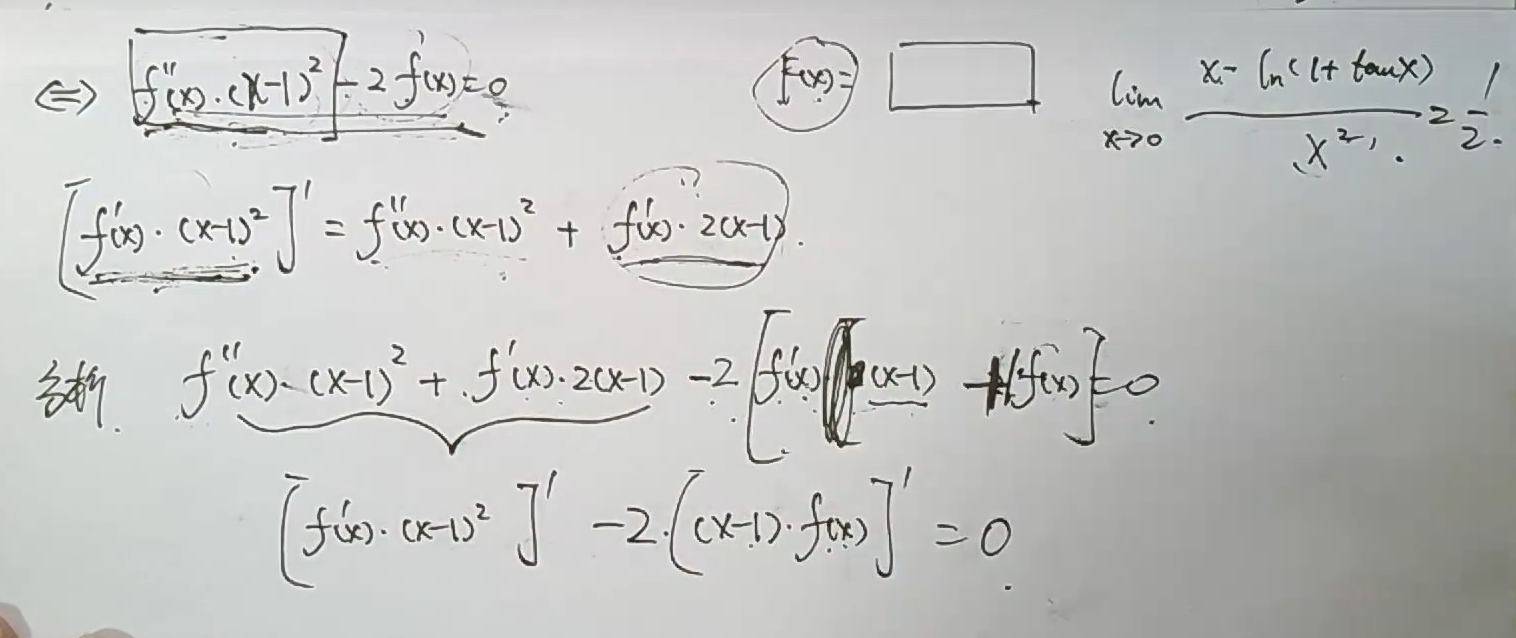 ⇔ f''(x)·(x-1)² - 2f(x)=0
F(x)=
lim x→0 (x - ln(1+tanx))/x² = 1/2.
[f'(x)·(x-1)²]' = f''(x)·(x-1)² + f'(x)·2(x-1).
分析. f''(x)·(x-1)² + f'(x)·2(x-1) -2[f'(x)(x-1) + f(x)]=0.
[f'(x)·(x-1)²]' -2·[(x-1)·f(x)]' = 0.